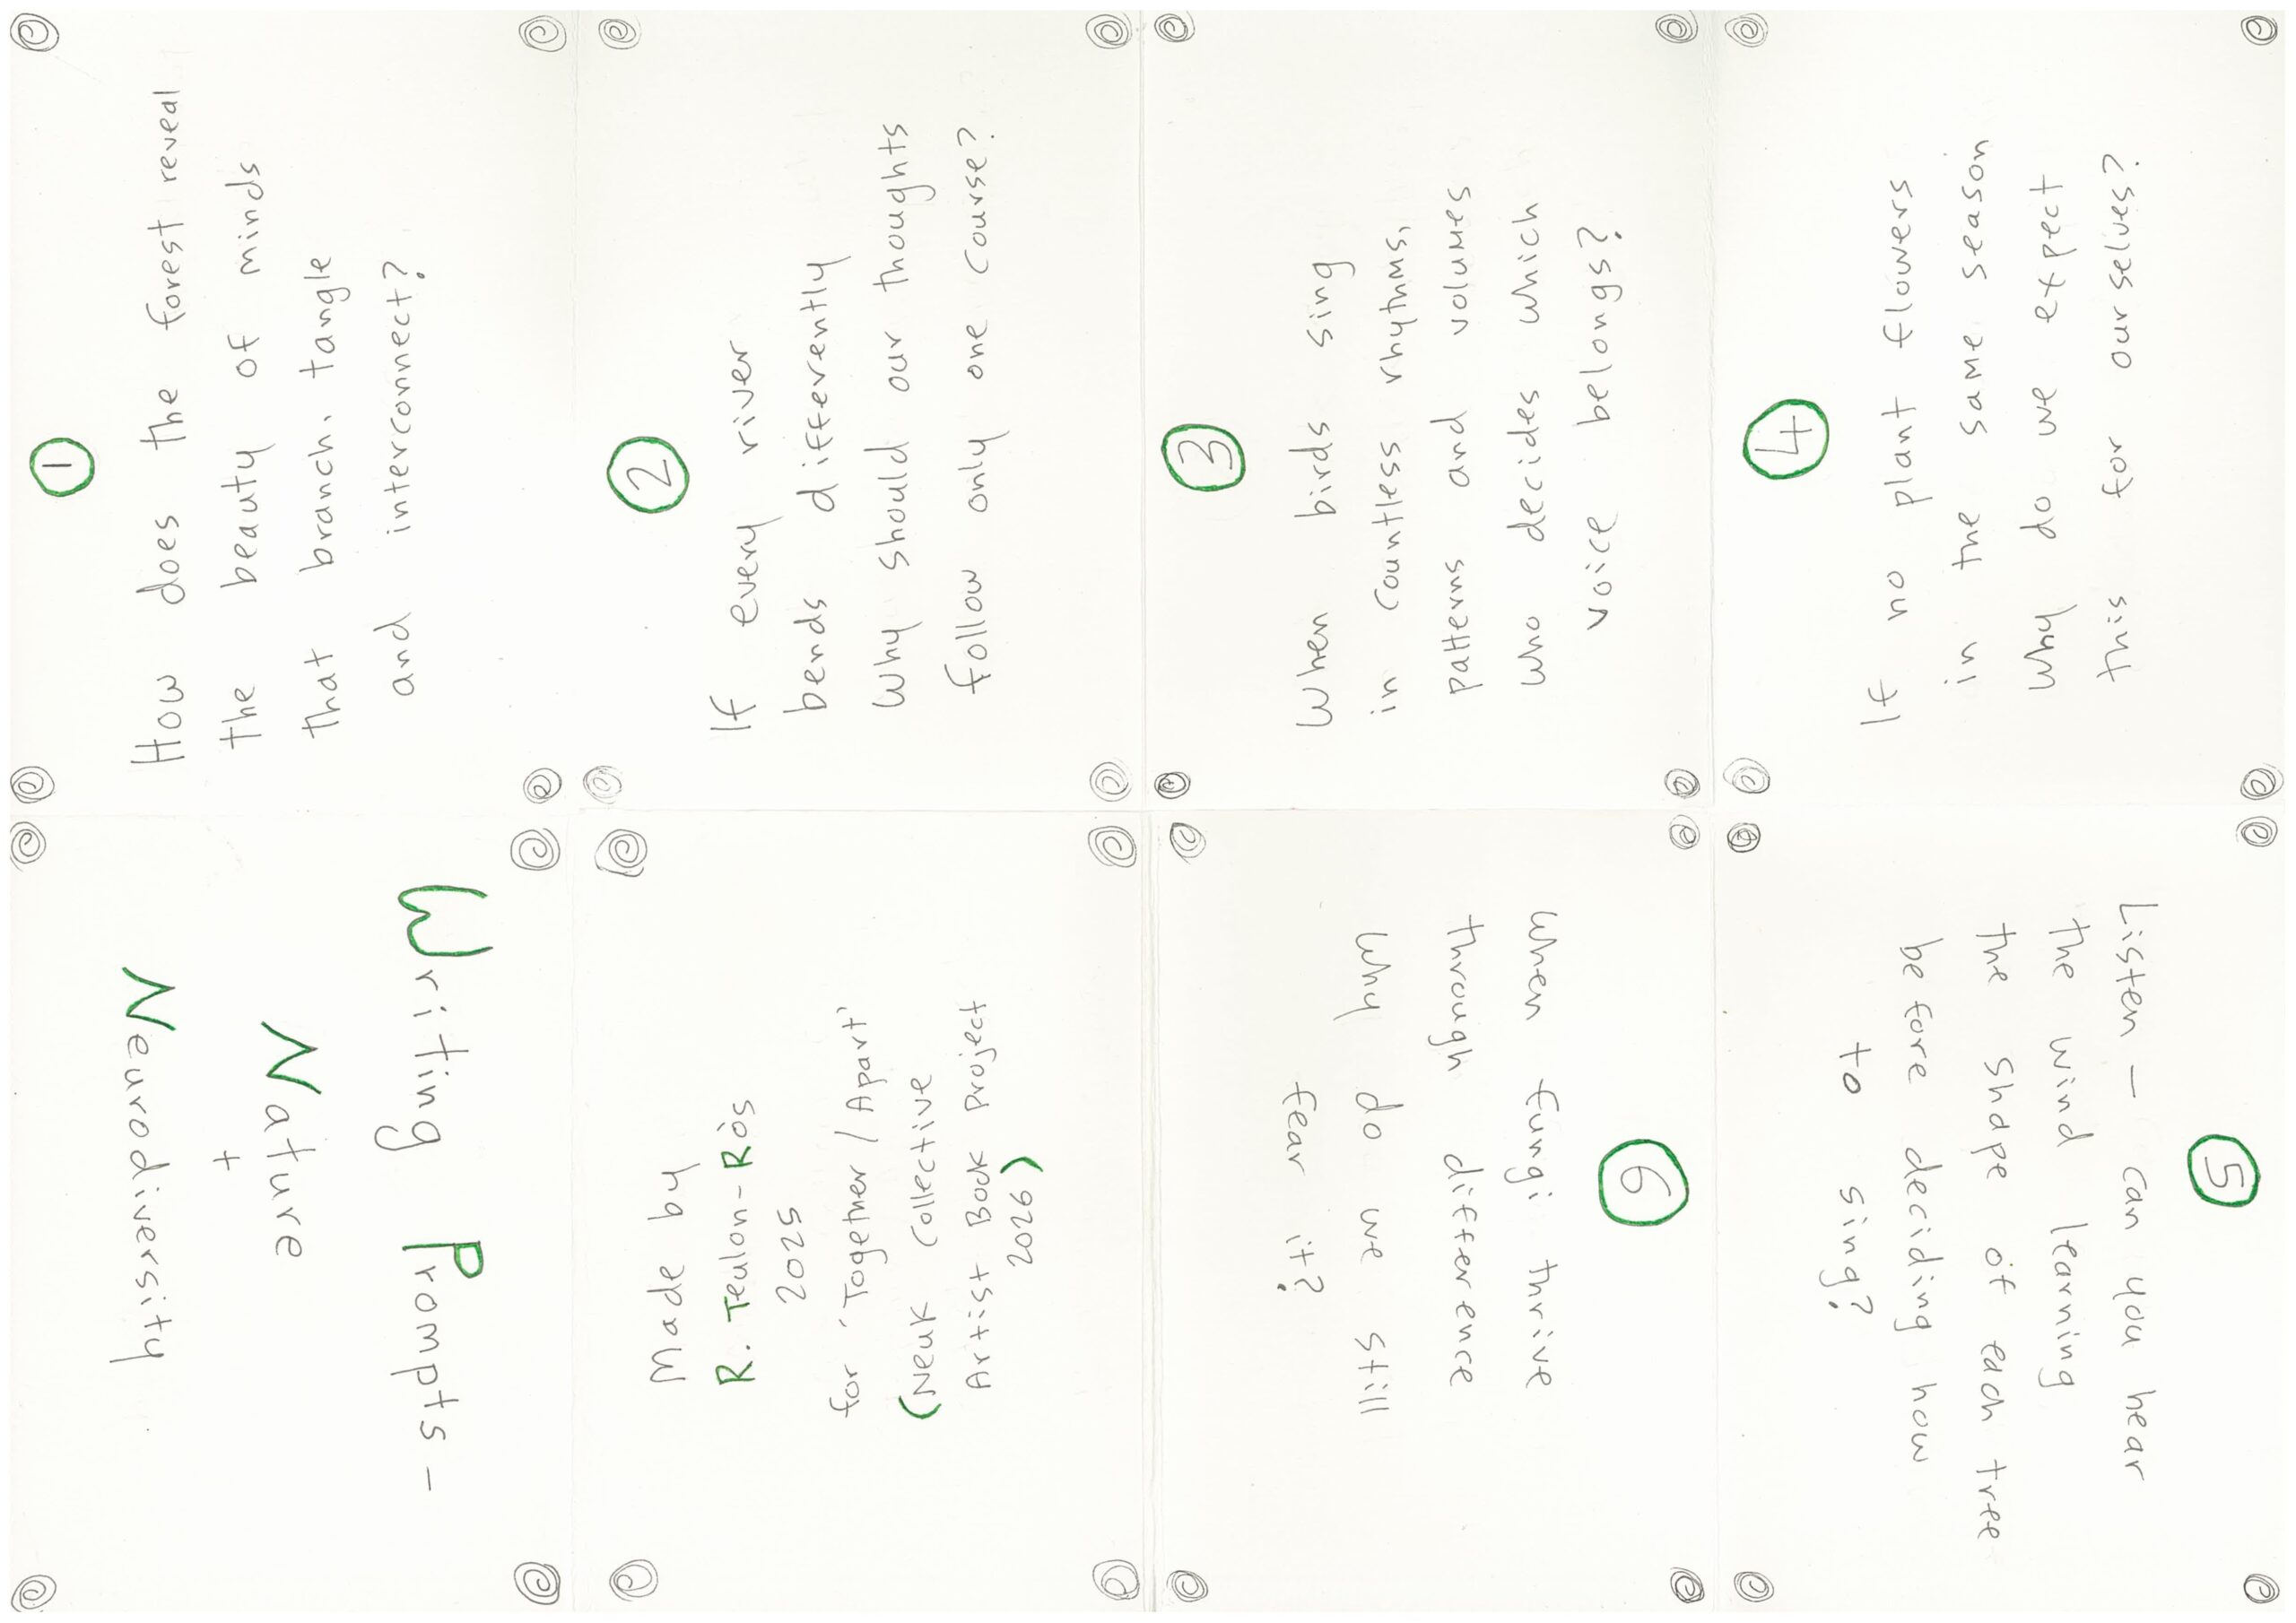 Writing Prompts -
Nature
+
Neurodiversity
1
How does the forest reveal
the beauty of minds
that branch, tangle
and interconnect?
2
If every river
bends differently
Why should our thoughts
follow only one course?
3
When birds sing
in countless rhythms,
patterns and volumes
who decides which
voice belongs?
4
If no plant flowers
in the same season
Why do we expect
this for ourselves?
5
Listen - can you hear
the wind learning
the shape of each tree
before deciding how
to sing?
6
When fungi thrive
through difference
Why do we still
fear it?
Made by
R. Teulon-Ròs
2025
for 'Together / Apart'
(Neuk Collective
Artist Book Project
2026)